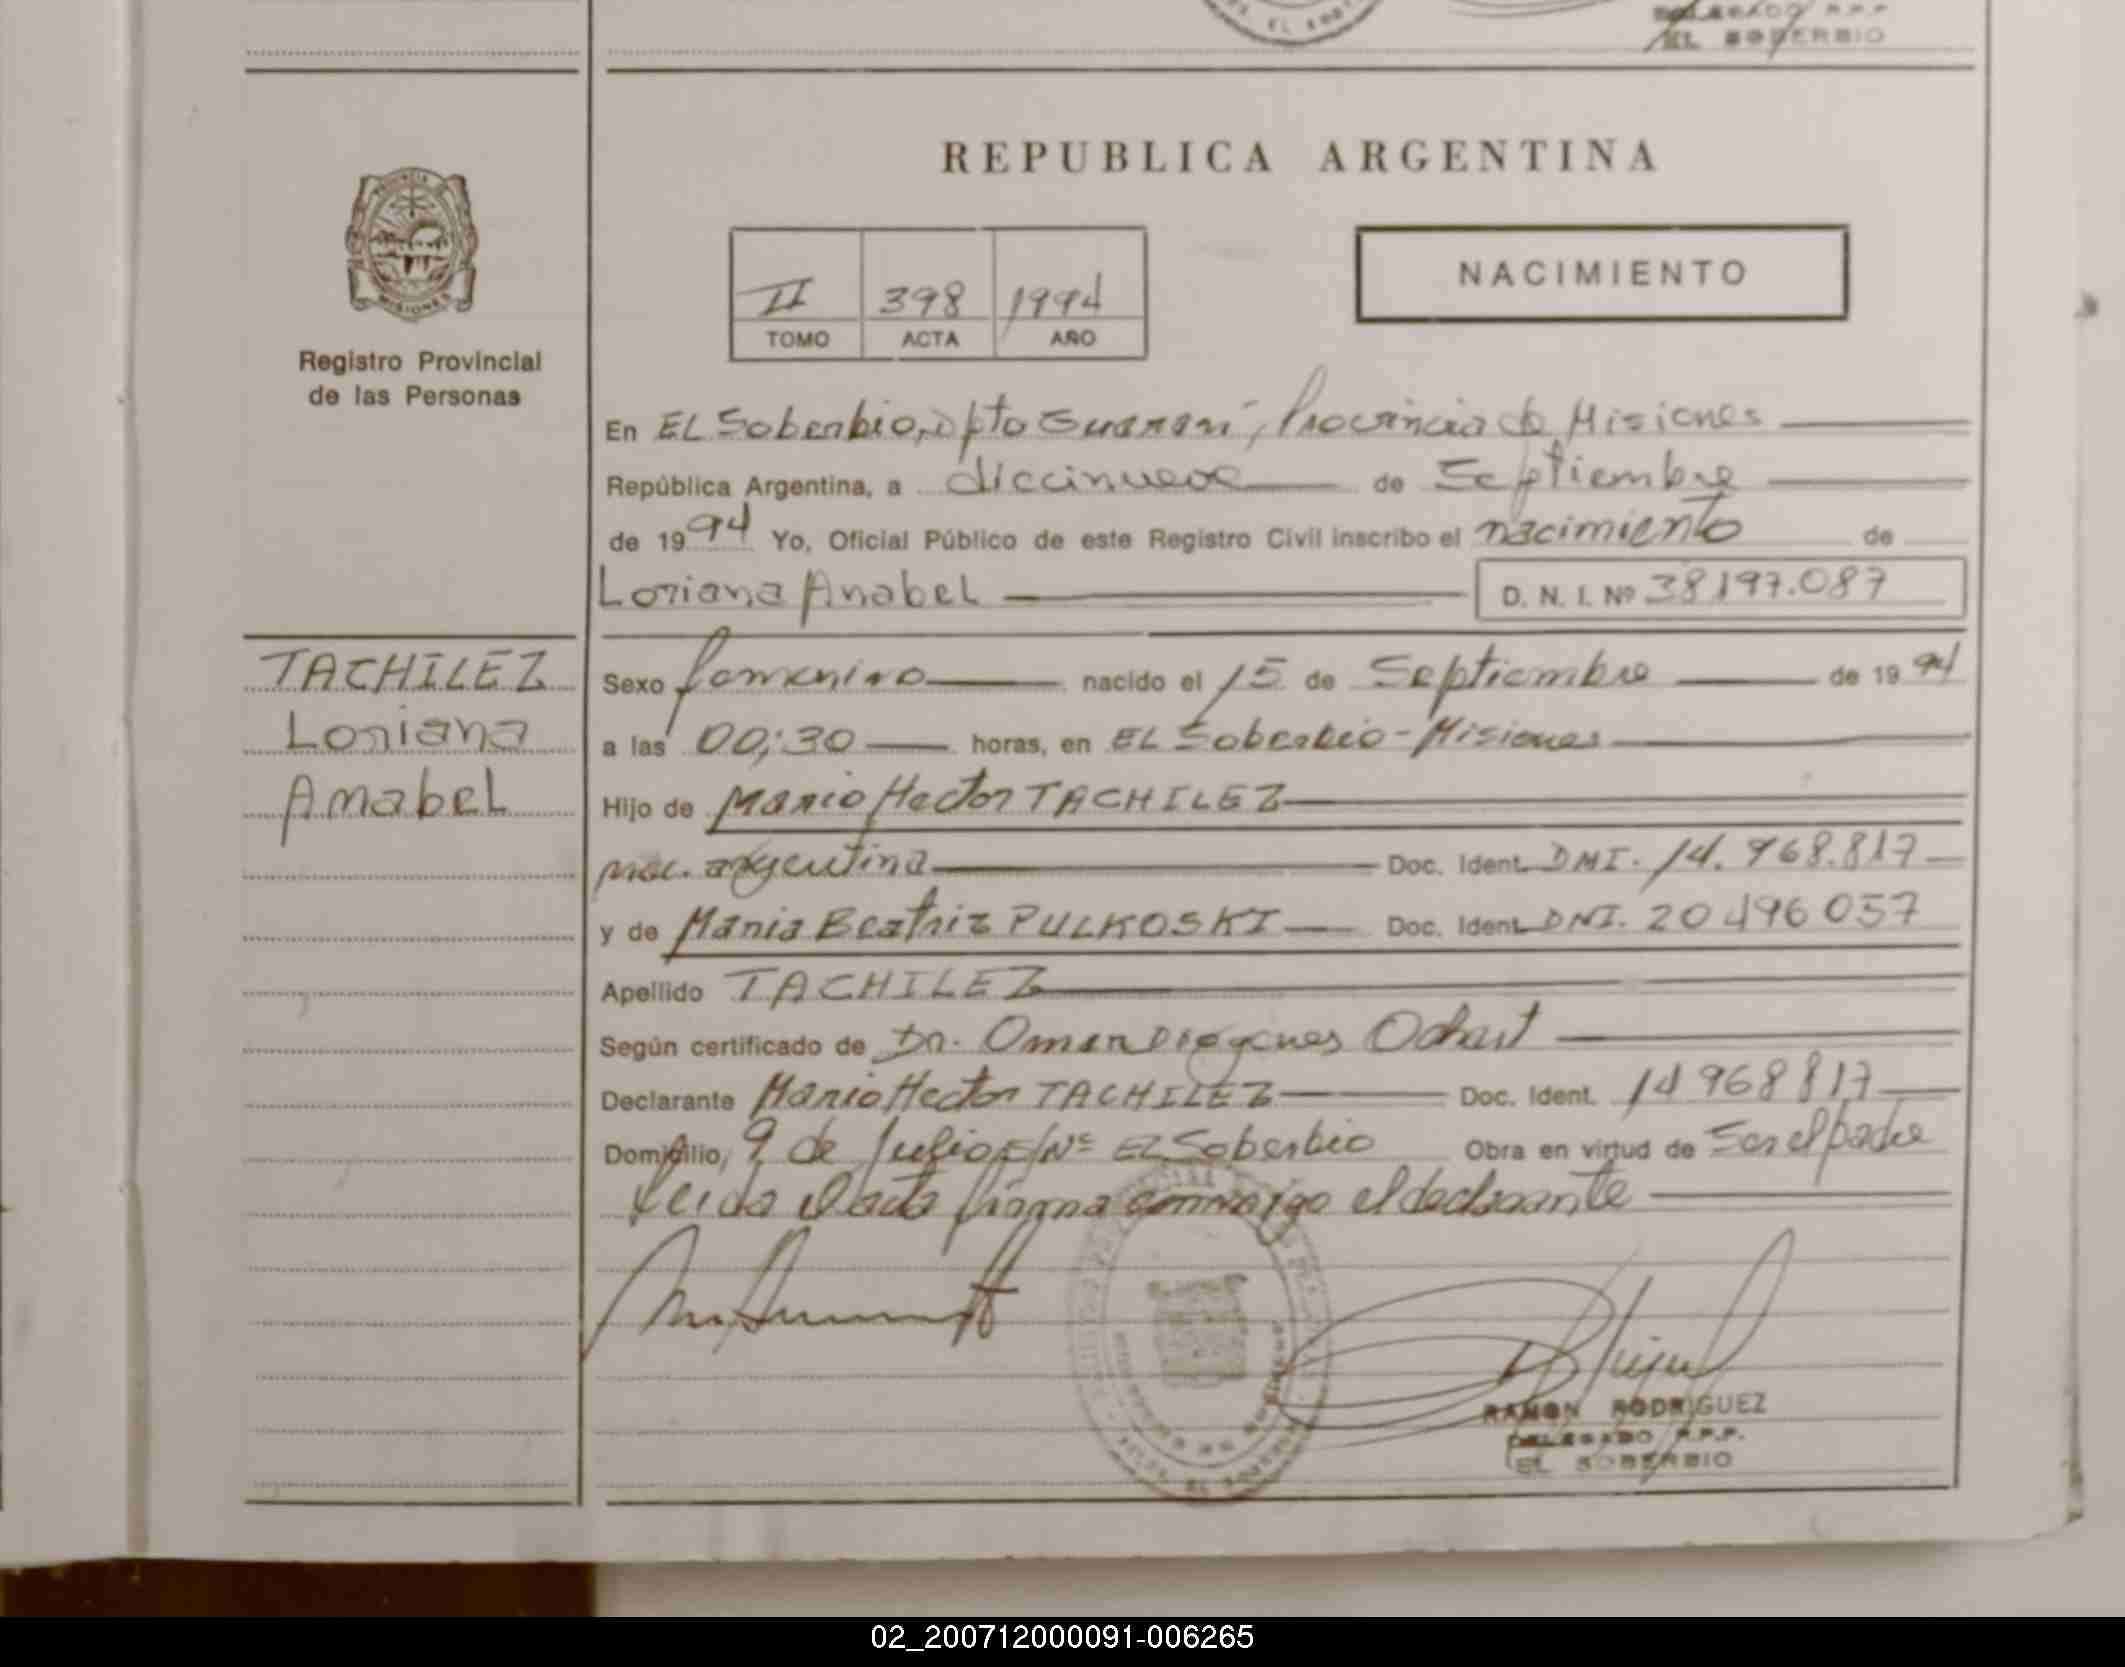 EL SOBERBIO
REPUBLICA ARGENTINA
II 398 1994
TOMO ACTA AÑO
NACIMIENTO
PROVINCIA DE
MISIONES
Registro Provincial
de las Personas
En EL Soberbio, Dpto Guarani, Provincia de Misiones
República Argentina, a diecinueve de Septiembre
de 1994 Yo, Oficial Público de este Registro Civil inscribo el nacimiento de
Loriana Anabel D. N. I. Nº 38197.087
TACHILEZ
Loriana
Anabel
Sexo femenino nacido el 15 de Septiembre de 1994
a las 00;30 horas, en EL Soberbio-Misiones
Hijo de Mario Hector TACHILEZ
nac. argentina Doc. Ident. DNI. 14.968.817
y de Maria Beatriz PULKOSKI Doc. Ident. DNI. 20496057
Apellido TACHILEZ
Según certificado de Dr. Omar Diogenes
Declarante Mario Hector TACHILEZ Doc. Ident. 14968817
Domicilio, 9 de Julio S/Nº EL Soberbio Obra en virtud de Ser el padre
Leida el acta firma conmigo el declarante
RAMON RODRIGUEZ
DELEGADO R.P.P.
EL SOBERBIO
02_200712000091-006265